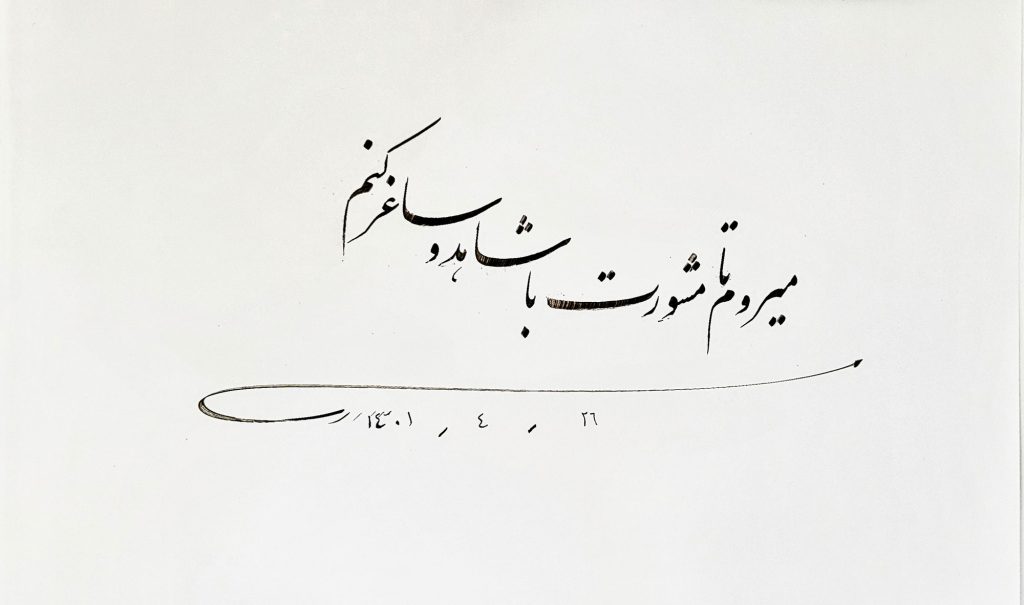 میروم تا مشورت با شاهد و ساغر کنم
۲۶ ، ٤ ، ۱۴۰۱